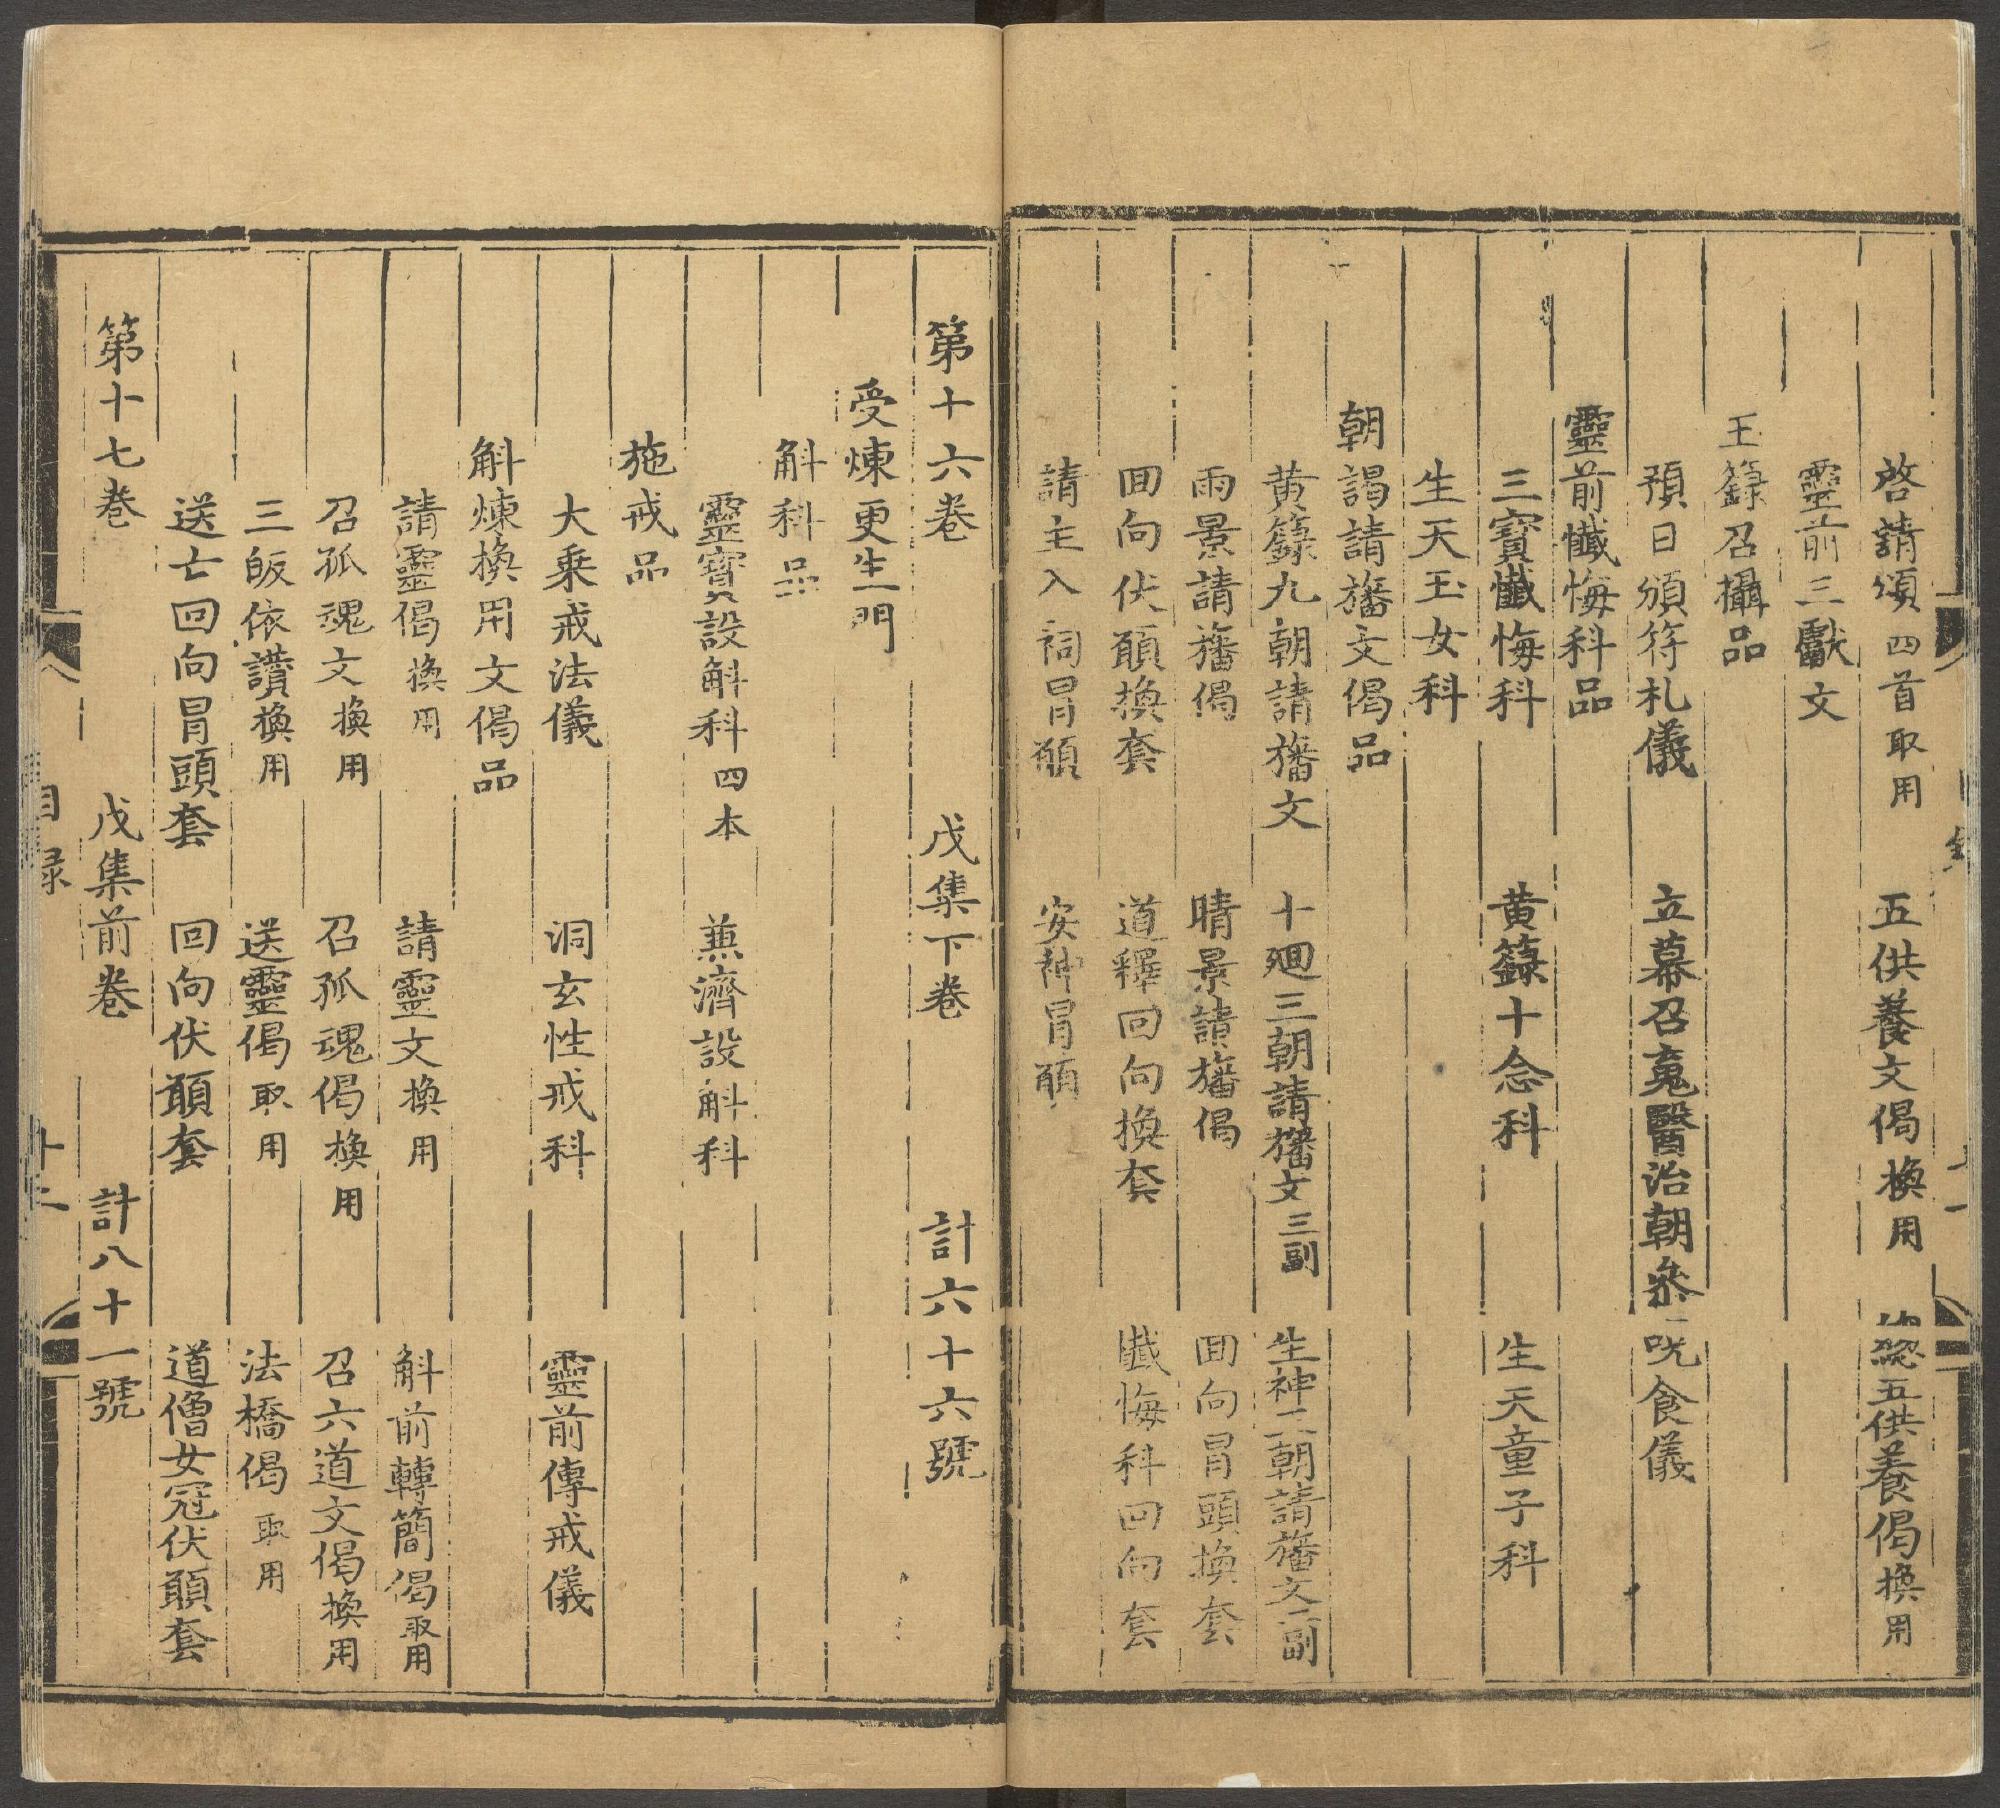 啓請頌四首取用　五供養文偈換用　総五供養偈換用
靈前三獻文
王籙召攝品
預日頒符札儀　立幕召䰟醫治朝叅　呪食儀
靈前懺悔科品
三寳懺悔科　黄籙十念科　生天童子科
生天玉女科
朝謁請旛文偈品
黄籙九朝請旛文　十廻三朝請旛文三副　生神二朝請旛文二副
雨景請旛偈　晴景請旛偈　囬向冒頭換套
囬向伏願換套　道釋回向換套　懺悔科回向套
請主入祠冒願　安神冒願
第十六卷　戊集下卷　計六十六號
受煉更生門
斛科品
靈寳大設斛科四本　蕪濟設斛科
施戒品
大乗戒法儀　洞玄性戒科　靈前傳戒儀
斛煉換用文偈品
請靈偈換用　請靈文換用　斛前轉簡偈取用
召孤魂文換用　召孤魂偈換用　召六道文偈換用
三皈依讚換用　送靈偈取用　法橋偈取用
送亡回向冒頭套　回向伏願套　道僧女冠伏願套
第十七卷　戊集前卷　計八十一號
目録